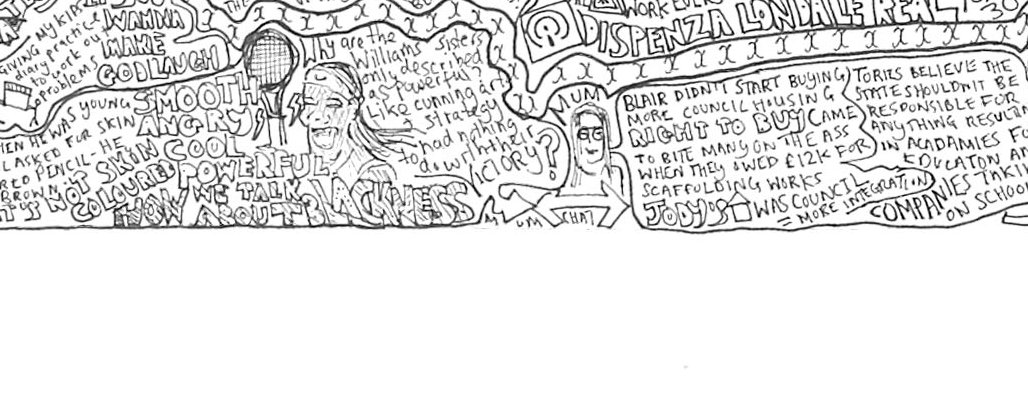 GIVING MY KIRA
diary practice
to work out
Problems
WANNA
MAKE
GOD LAUGH
THE
WORK EVER
DISPENZA LONDALE REAL
10:30
WAS YOUNG
ASKED FOR SKIN
RED PENCIL - HE
BROWN.
IT'S NOT SKIN
COLOURED
SMOOTH
ANGRY
COOL
POWERFUL
HOW WE TALK
ABOUT BLACKNESS
Why are the
Williams Sisters
only described
as powerful?
Like cunning art
strategy
had nothing
to do with their
VICTORY?
MUM
CHAT
BLAIR DIDN'T START BUYING
MORE COUNCIL HOUSING
RIGHT TO BUY CAME
TO BITE MANY ON THE ASS
WHEN THEY OWED £12K FOR
SCAFFOLDING WORKS
JODY'S WAS COUNCIL
= MORE INTEGRATION
TORIES BELIEVE THE
STATE SHOULDN'T BE
RESPONSIBLE FOR
ANYTHING
IN ACADAMIES
EDUCATON
COMPANIES
ON SCHOO